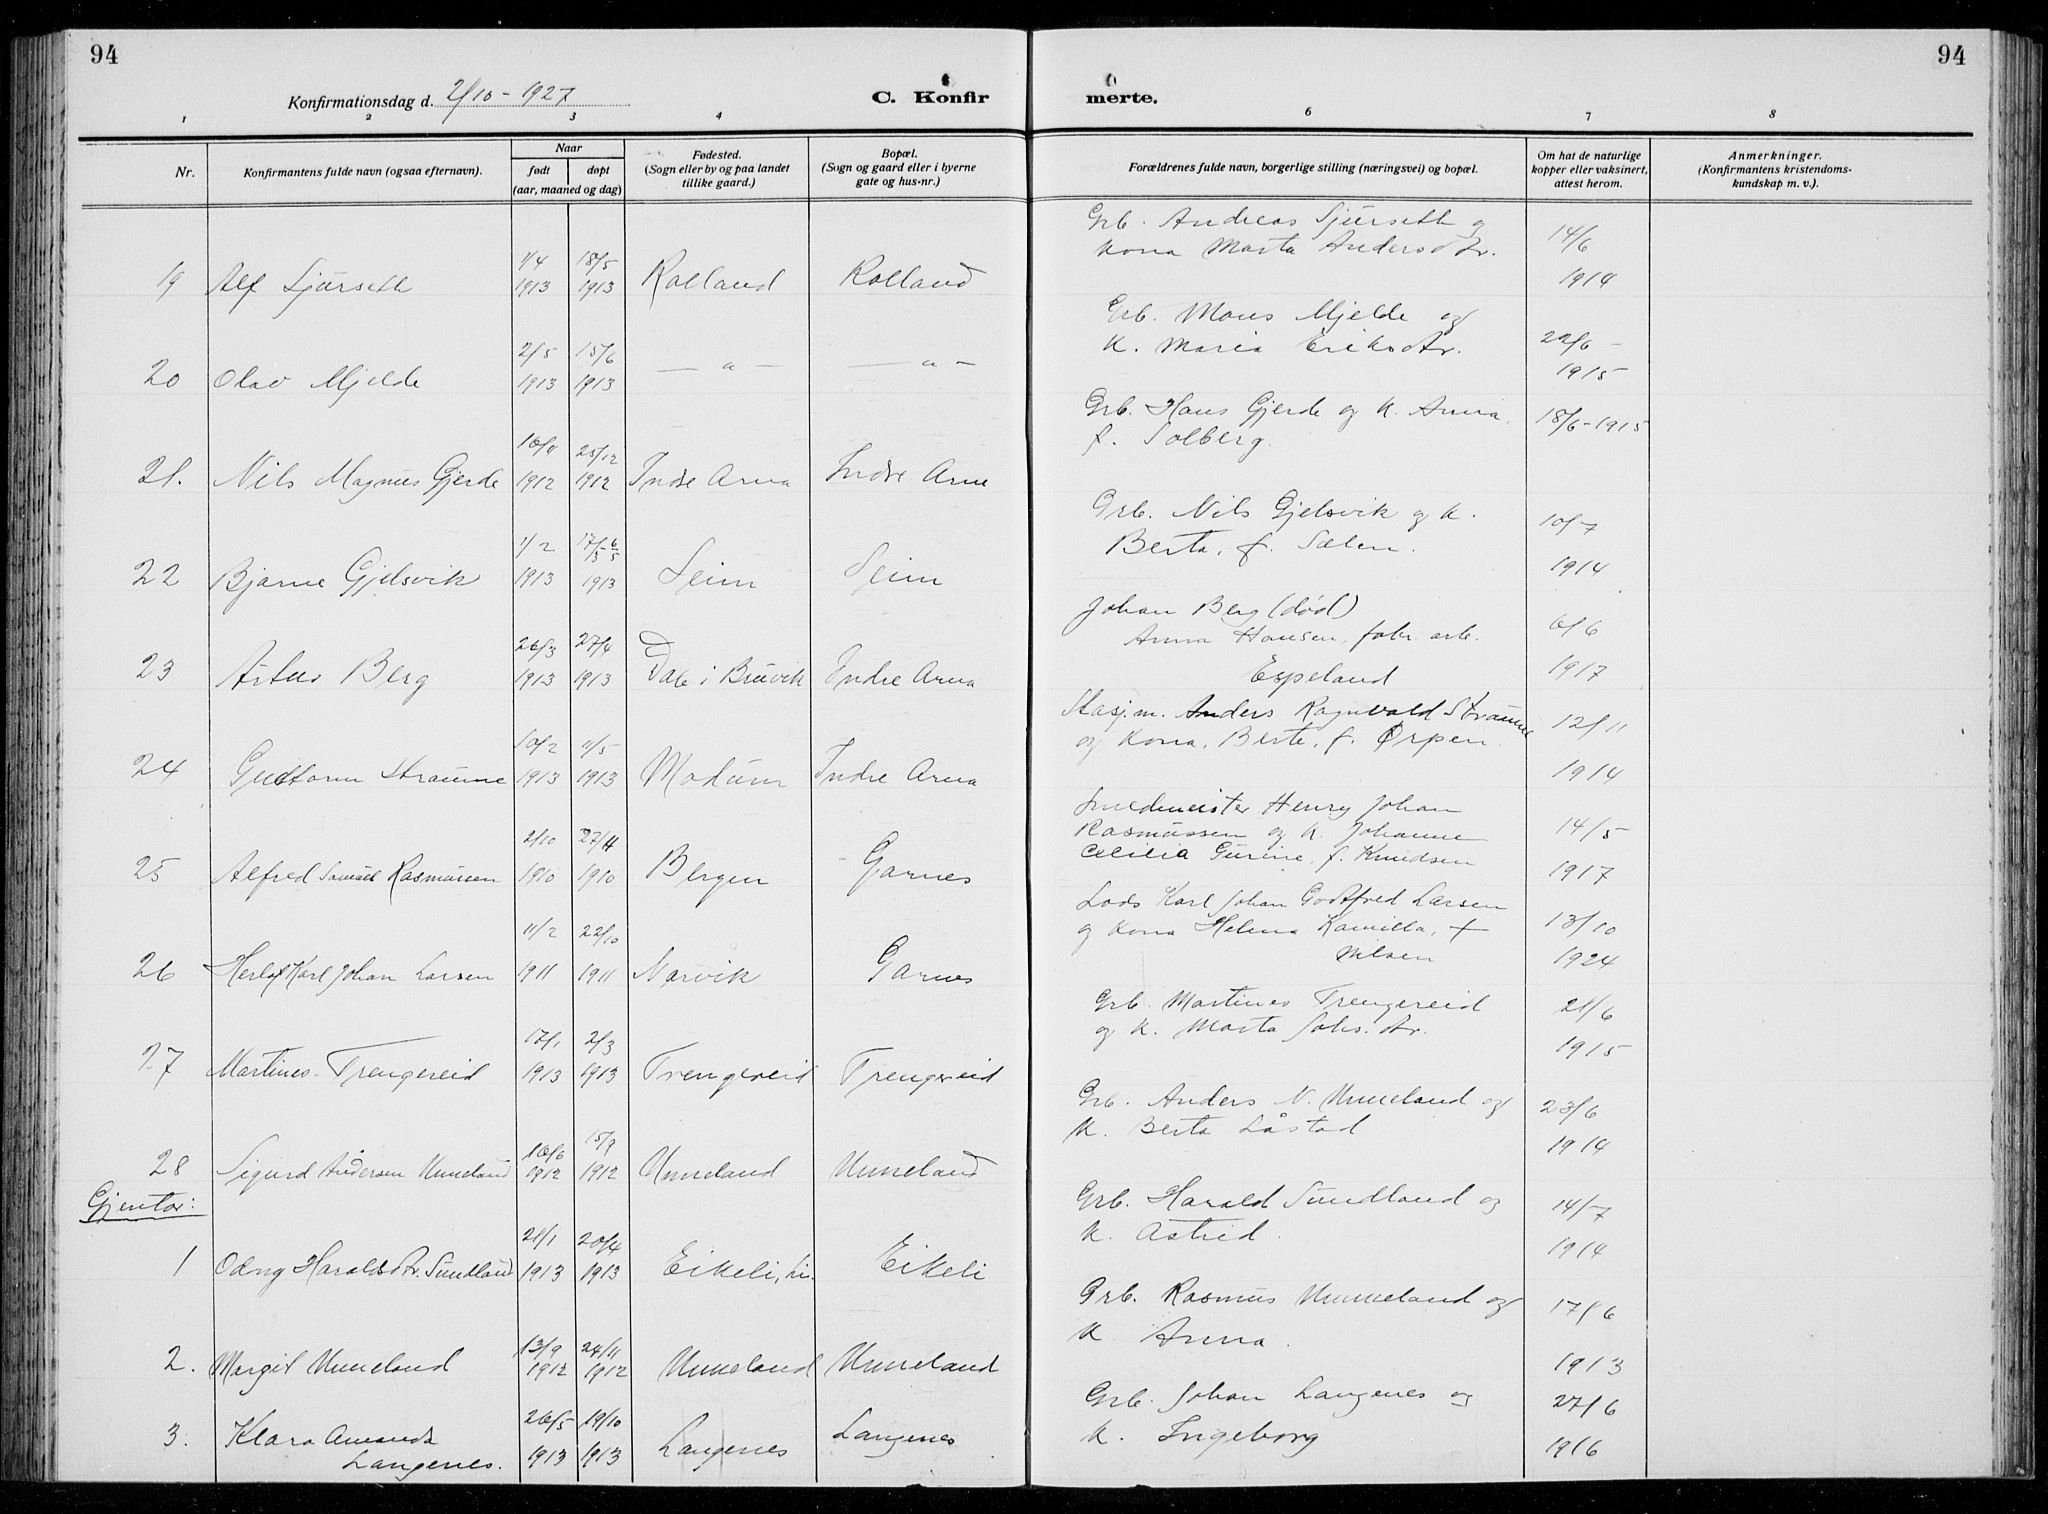 94
94
Konfirmationsdag d. 2/10 - 1927
C. Konfir
merte.
1 2 3 4 5 6 7 8
Nr.
Konfirmantens fulde navn (ogsaa efternavn).
Naar
født døpt
(aar, maaned og dag)
Fødested.
(Sogn eller by og paa landet
tillike gaard.)
Bopæl.
(Sogn og gaard eller i byerne
gate og hus-nr.)
Forældrenes fulde navn, borgerlige stilling (næringsvei) og bopæl.
Om hat de naturlige
kopper eller vaksinert,
attest herom.
Anmerkninger.
(Konfirmantens kristendoms-
kundskap m. v.).
Grb. Andreas Sjurseth og
kona Marta Andersdtr.
14/6
1914
1/4 18/5
19 Alf Sjurseth 1913 1913 Rolland Rolland
Grb. Mons Mjelde og
K. Maria Eriksdtr.
22/6 -
1915
2/5 15/6
20 Olav Mjelde 1913 1913 — " — — " —
Grb. Hans Gjerde og K. Anna
f. Solberg.
18/6-1915
25/12
21. Nils Magnus Gjerde 1912 1912 Indre Arna Indre Arne
Grb. Nils Gjelsvik og K.
Berta, f. Sælen.
10/7
1914
1/2 17/3 6/5
22 Bjarne Gjelsvik 1913 1913 Seim Seim
Johan Berg (død)
Anna Hansen, fabr. arb.
Espeland
6/6
1917
26/3 27/4
23 Artur Berg 1913 1913 Dale i Bruvik Indre Arna
Stasj.m. Anders Ragnvald Straume
og kona, Berte, f. Ørpen.
12/11
1914
10/2 11/5
24 Guttorm Straume 1913 1913 Modum Indre Arna
Smedmeister Henry Johan
Rasmussen og K. Johanne
Cecilia Gurine, f. Knudsen
14/5
1917
2/10 27/11
25 Alfred Samuel Rasmussen 1910 1910 Bergen Garnes
Lods Karl Johan Godtfred Larsen
og kona Helena Kamilla, f
Nilsen
13/10
1924
11/2 22/10
26 Herlof Karl Johan Larsen 1911 1911 Narvik Garnes
Grb. Martines Trengereid
og K. Marta Johs. dtr.
21/6
1915
17/1 2/3
27 Martines Trengereid 1913 1913 Trengereid Trengereid
Grb. Anders N. Unneland og
K. Berta Låstad
23/6
1914
10/6 15/9
28 Sigurd Andersen Unneland 1912 1912 Unneland Unneland
Gjentor:
Grb. Harald Sundland og
K. Astrid.
14/7
1914
21/1 20/4
1 Odny Haraldsdtr. Sundland 1913 1913 Eikeli, Eikeli
Grb. Rasmus Unneland og
K. Anna.
17/6
1913
13/9 24/11
2. Margit Unneland 1912 1912 Unneland Unneland
Grb. Johan Langenes og
K. Ingeborg
27/6
1916
26/5 19/10
3. Klara Amanda
Langenes. 1913 1913 Langenes Langenes